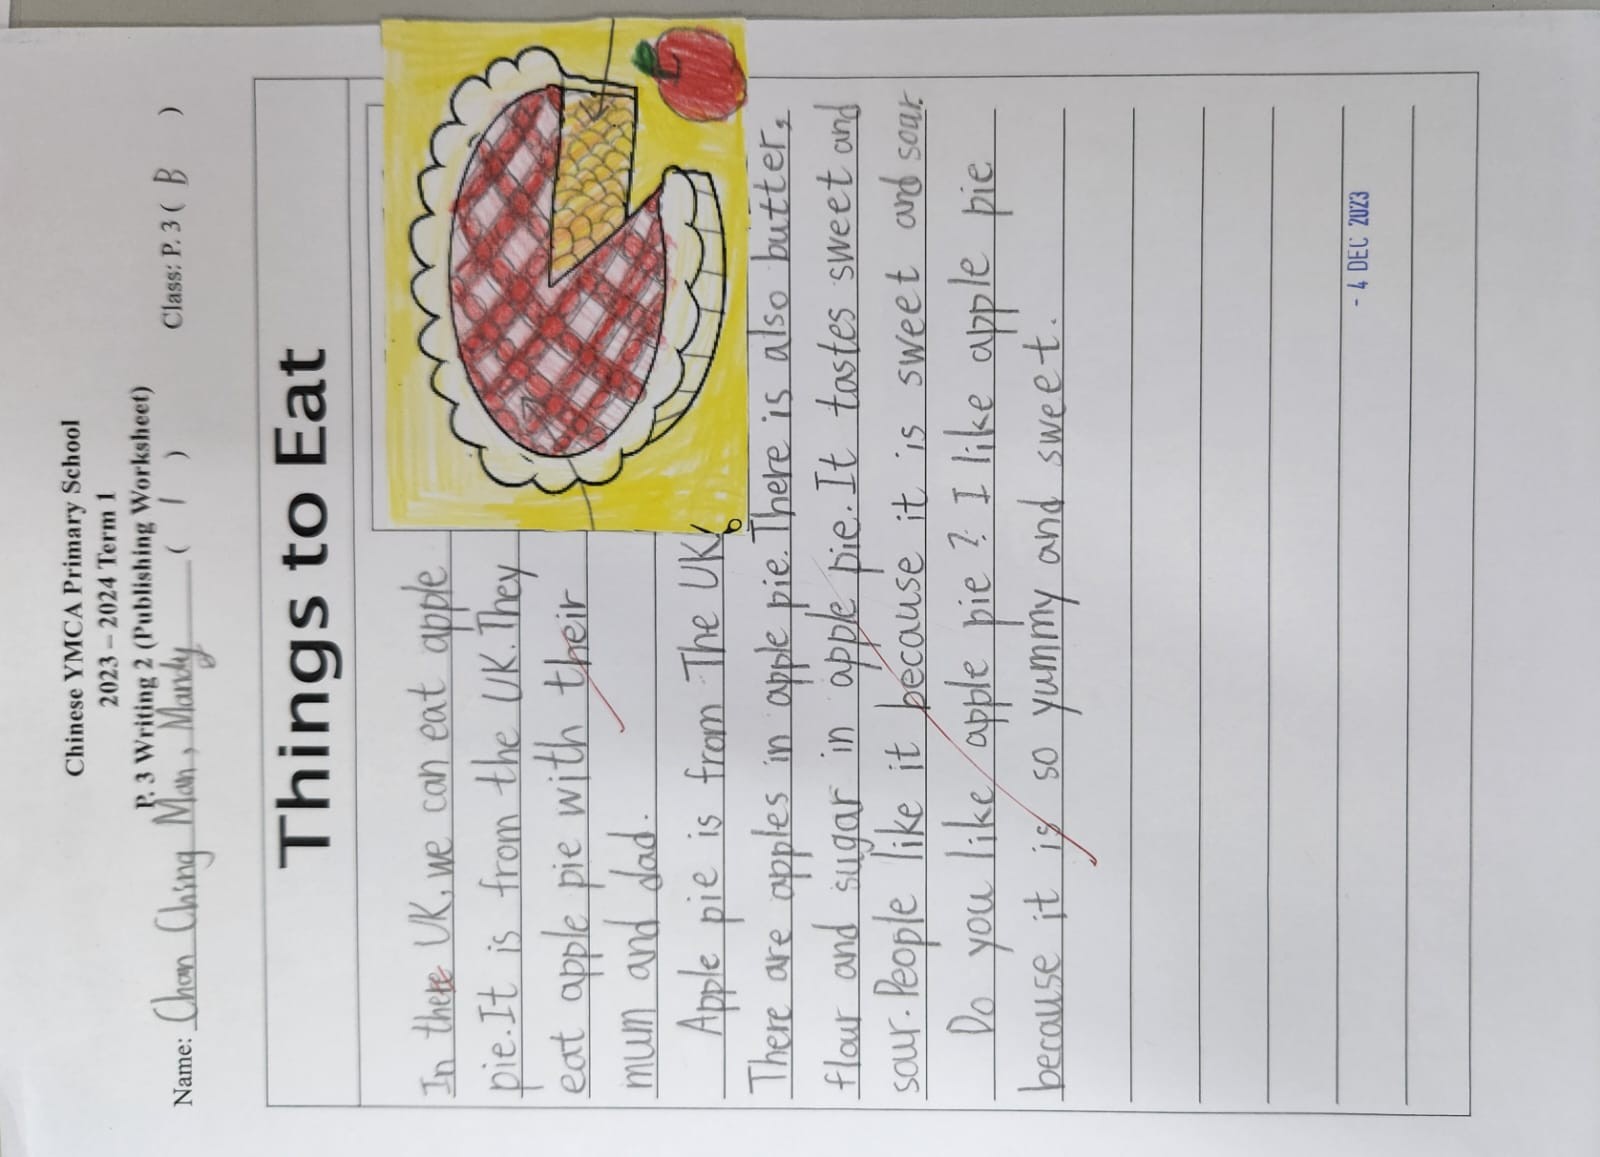 Chinese YMCA Primary School
2023 – 2024 Term 1
P. 3 Writing 2 (Publishing Worksheet)
Name: Chan Ching Man, Mandy ( 1 ) Class: P. 3 ( B )
Things to Eat
In there UK, we can eat apple
pie. It is from the UK. They
eat apple pie with their
mum and dad.
Apple pie is from The UK.
There are apples in apple pie. There is also butter,
flour and sugar in apple pie. It tastes sweet and
sour. People like it because it is sweet and sour.
Do you like apple pie? I like apple pie
because it is so yummy and sweet.
- 4 DEC 2023